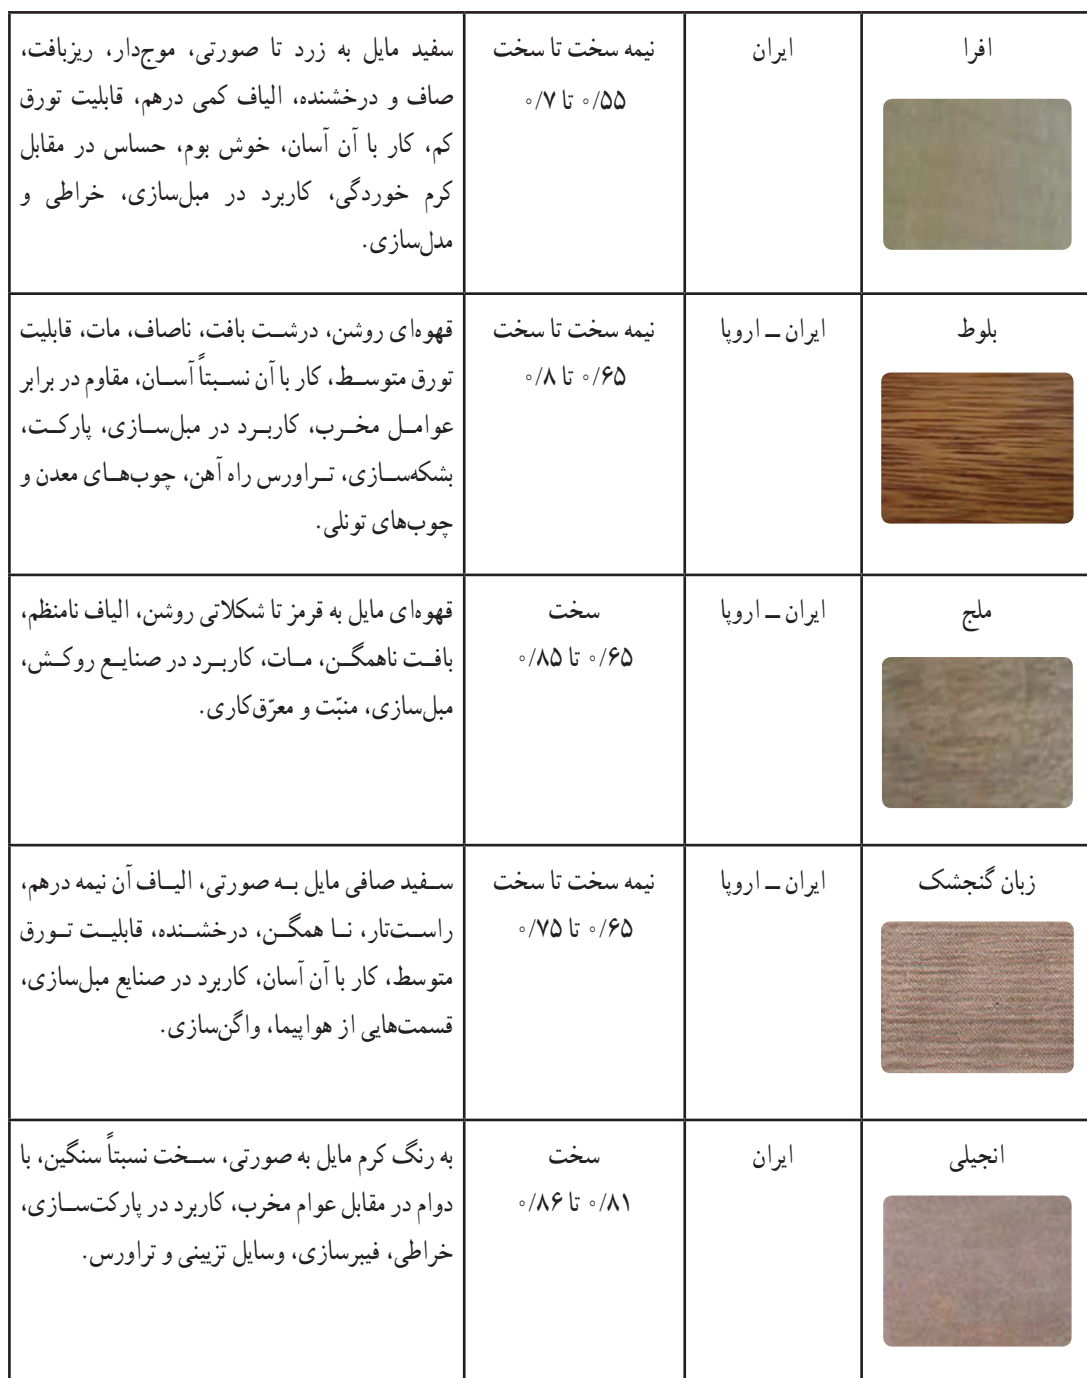 افرا
ایران
نیمه سخت تا سخت
۰/۵۵ تا ۰/۷
سفید مایل به زرد تا صورتی، موج‌دار، ریزبافت،
صاف و درخشنده، الیاف کمی درهم، قابلیت تورق
کم، کار با آن آسان، خوش بوم، حساس در مقابل
کرم خوردگی، کاربرد در مبل‌سازی، خراطی و
مدل‌سازی.
بلوط
ایران ـ اروپا
نیمه سخت تا سخت
۰/۶۵ تا ۰/۸
قهوه‌ای روشن، درشت بافت، ناصاف، مات، قابلیت
تورق متوسط، کار با آن نسبتاً آسان، مقاوم در برابر
عوامل مخرب، کاربرد در مبل‌سازی، پارکت،
بشکه‌سازی، تراورس راه آهن، چوب‌های معدن و
چوب‌های تونلی.
ملج
ایران ـ اروپا
سخت
۰/۶۵ تا ۰/۸۵
قهوه‌ای مایل به قرمز تا شکلاتی روشن، الیاف نامنظم،
بافت ناهمگن، مات، کاربرد در صنایع روکش،
مبل‌سازی، منبّت و معرّق‌کاری.
زبان گنجشک
ایران ـ اروپا
نیمه سخت تا سخت
۰/۶۵ تا ۰/۷۵
سفید صافی مایل به صورتی، الیاف آن نیمه درهم،
راست‌تار، نا همگن، درخشنده، قابلیت تورق
متوسط، کار با آن آسان، کاربرد در صنایع مبل‌سازی،
قسمت‌هایی از هواپیما، واگن‌سازی.
انجیلی
ایران
سخت
۰/۸۱ تا ۰/۸۶
به رنگ کرم مایل به صورتی، سخت نسبتاً سنگین، با
دوام در مقابل عوام مخرب، کاربرد در پارکت‌سازی،
خراطی، فیبرسازی، وسایل تزیینی و تراورس.